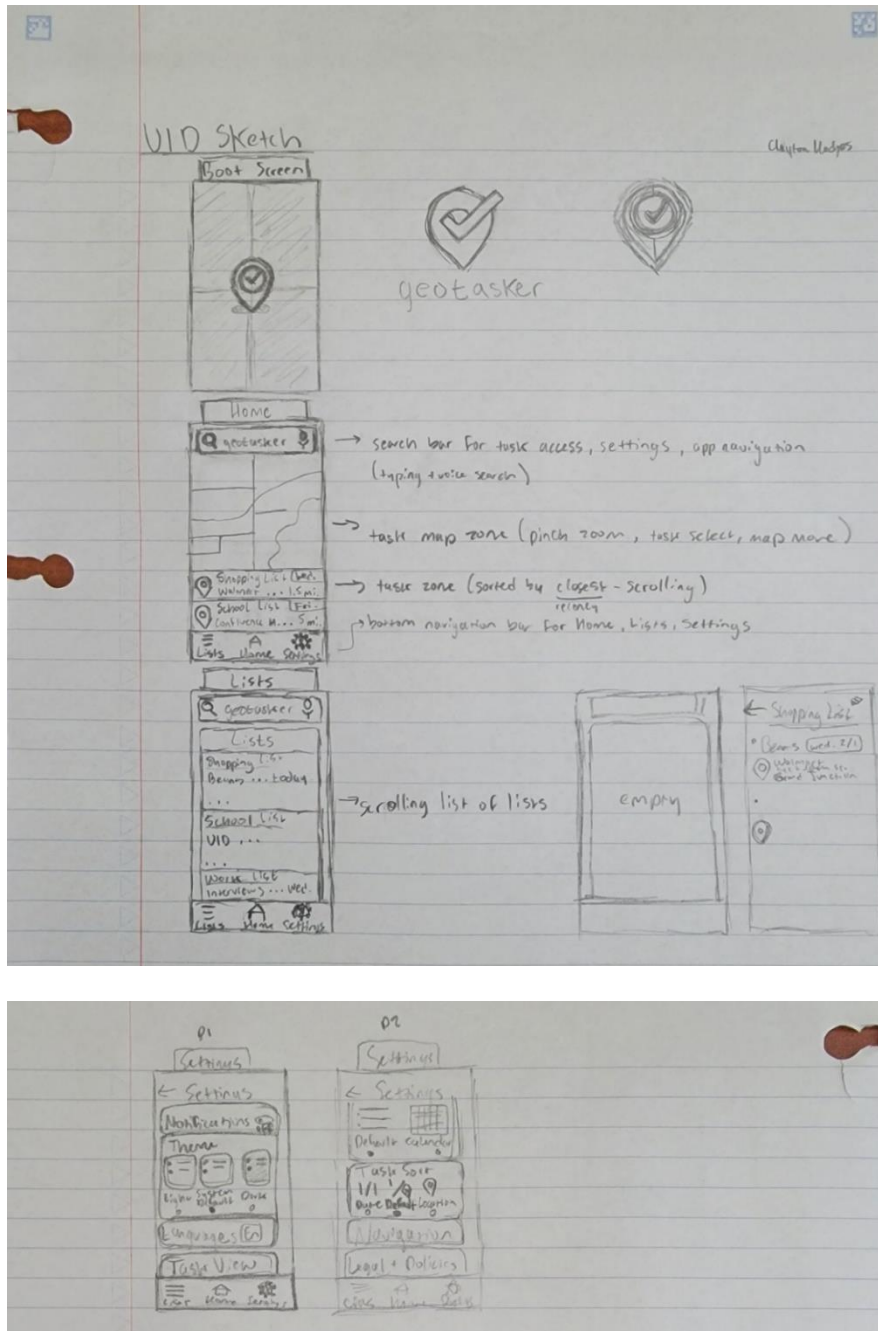 UID Sketch
Clayton
Boot Screen
geotasker
Home
geotasker
→ search bar for task access, settings, app navigation
(typing + voice search)
→ task map zone (pinch zoom, task select, map move)
Shopping List Wed.
Walmart ... 1.5 mi.
→ task zone (sorted by closest - scrolling)
School List Fri.
... 5 mi.
→ bottom navigation bar for Home, Lists, Settings
Lists Home Settings
Lists
geotasker
Lists
Shopping List
Beans ... today
...
School List
UID ...
...
Work List
Interviews ... Wed.
Lists Home Settings
→ scrolling list of lists
empty
← Shopping List
• Beans Wed. 2/1
Walmart
Grand Junction
P1
Settings
← Settings
Notifications
Theme
Light System Default Dark
Languages En
Task View
Lists Home Settings
P2
Settings
← Settings
Default Calendar
Task Sort
1/1 1/
Date Default Location
Navigation
Legal + Policies
Lists Home